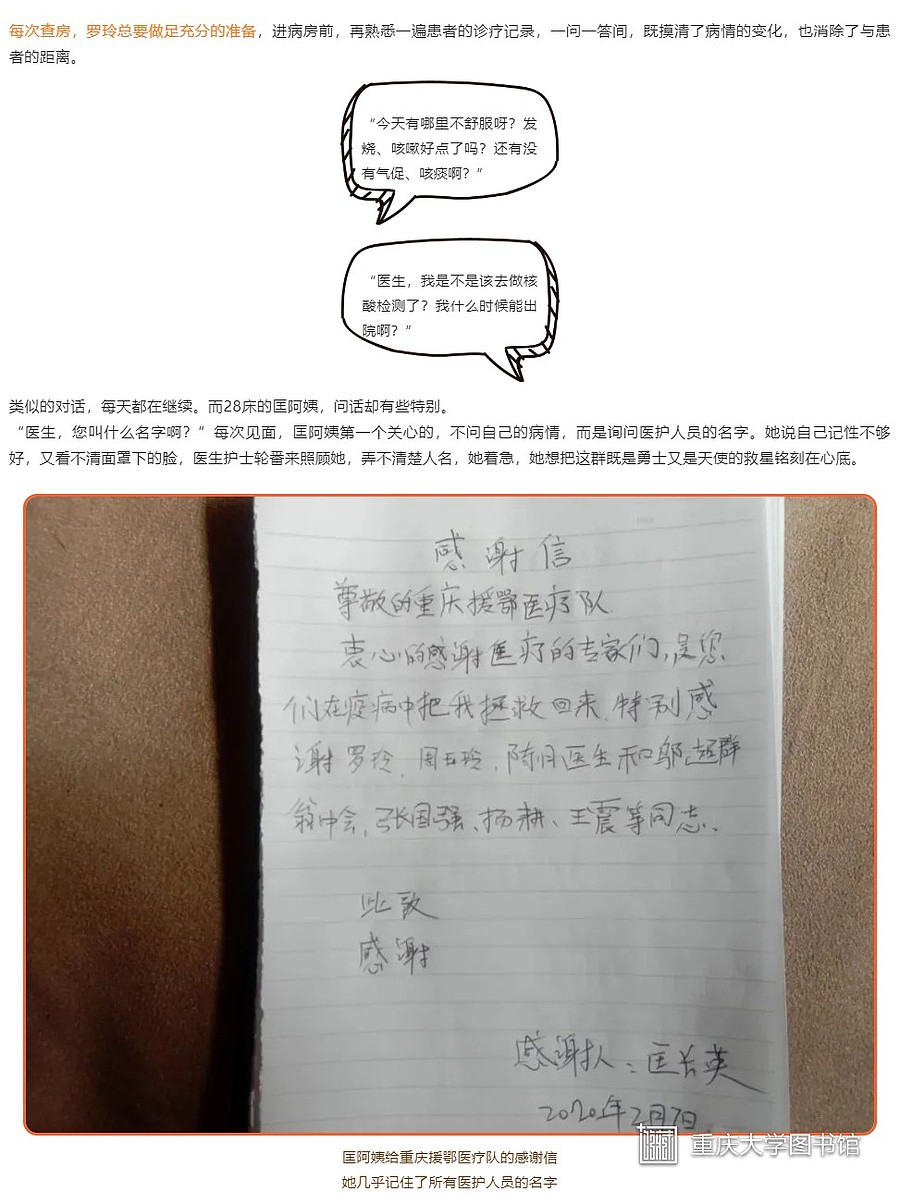 每次查房，罗玲总要做足充分的准备，进病房前，再熟悉一遍患者的诊疗记录，一问一答间，既摸清了病情的变化，也消除了与患
者的距离。
“今天有哪里不舒服呀？发
烧、咳嗽好点了吗？还有没
有气促、咳痰啊？”
“医生，我是不是该去做核
酸检测了？我什么时候能出
院啊？”
类似的对话，每天都在继续。而28床的匡阿姨，问话却有些特别。
“医生，您叫什么名字啊？”每次见面，匡阿姨第一个关心的，不问自己的病情，而是询问医护人员的名字。她说自己记性不够
好，又看不清面罩下的脸，医生护士轮番来照顾她，弄不清楚人名，她着急，她想把这群既是勇士又是天使的救星铭刻在心底。
感谢信
尊敬的重庆援鄂医疗队
衷心的感谢医疗的专家们，是您
们在疫病中把我拯救回来.特别感
谢罗玲.周玉玲.陈月医生和邬超群
翁中会.张国强、杨耕、王震等同志.
此致
感谢
感谢人：匡长英
2020年2月7日
重庆大学图书馆
匡阿姨给重庆援鄂医疗队的感谢信
她几乎记住了所有医护人员的名字